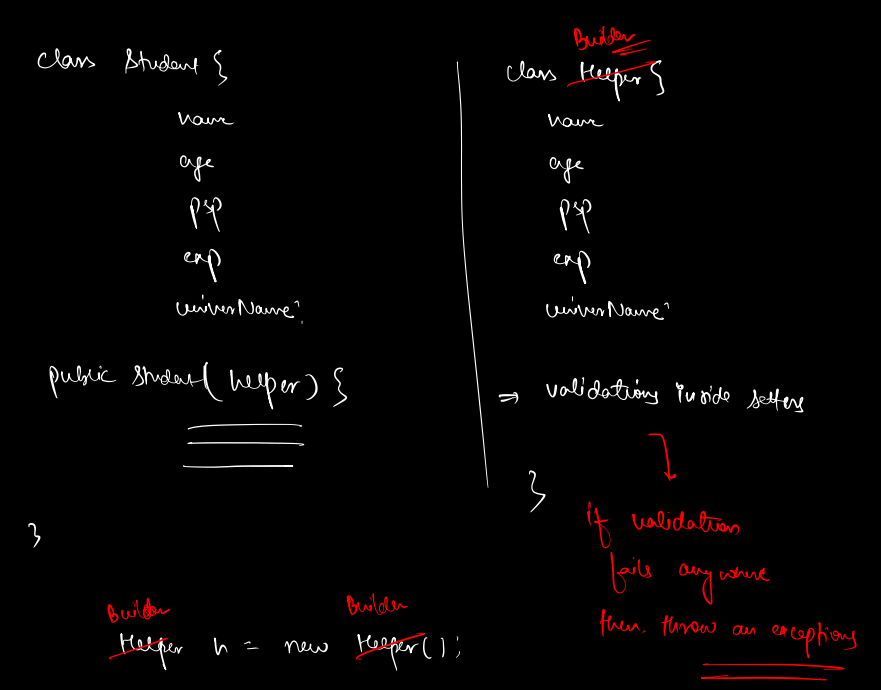 class Student {
name
age
psp
exp
univerName
public Student(helper) {
}
Builder
class Helper {
name
age
psp
exp
univerName
⇒ validations inside setters
}
if validation
fails anywhere
then, throw an exceptions
Builder Builder
Helper h = new Helper();